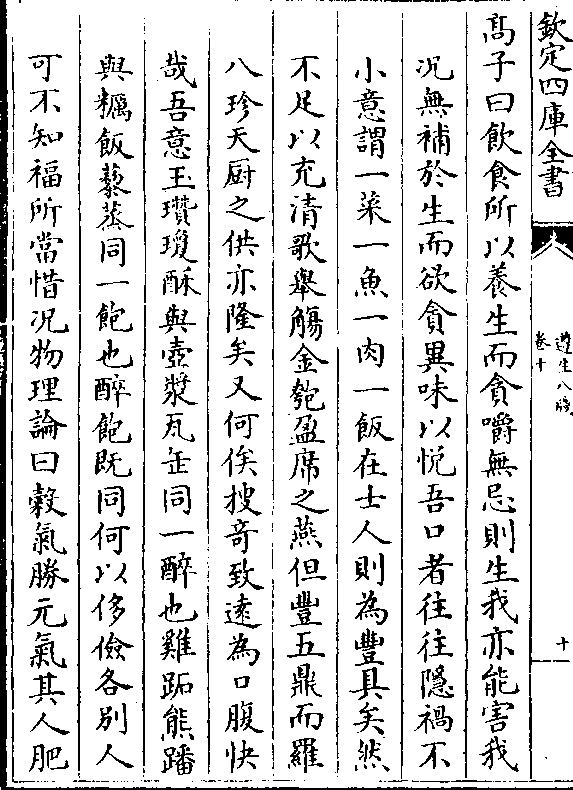 欽定四庫全書
遵生八牋
卷十
十
髙子曰飲食所以養生而貪嚼無忌則生我亦能害我
况無補於生而欲貪異味以悅吾口者往往隱禍不
小意謂一菜一魚一肉一飯在士人則為豐具矣然
不足以充清歌舉觴金匏盈席之燕但豐五鼎而羅
八珍天厨之供亦隆矣又何俟搜竒致遠為口腹快
哉吾意玉瓚瓊酥與壺漿瓦缶同一醉也雞跖熊蹯
與糲飯藜蒸同一飽也醉飽既同何以侈儉各别人
可不知福所當惜况物理論曰穀氣勝元氣其人肥